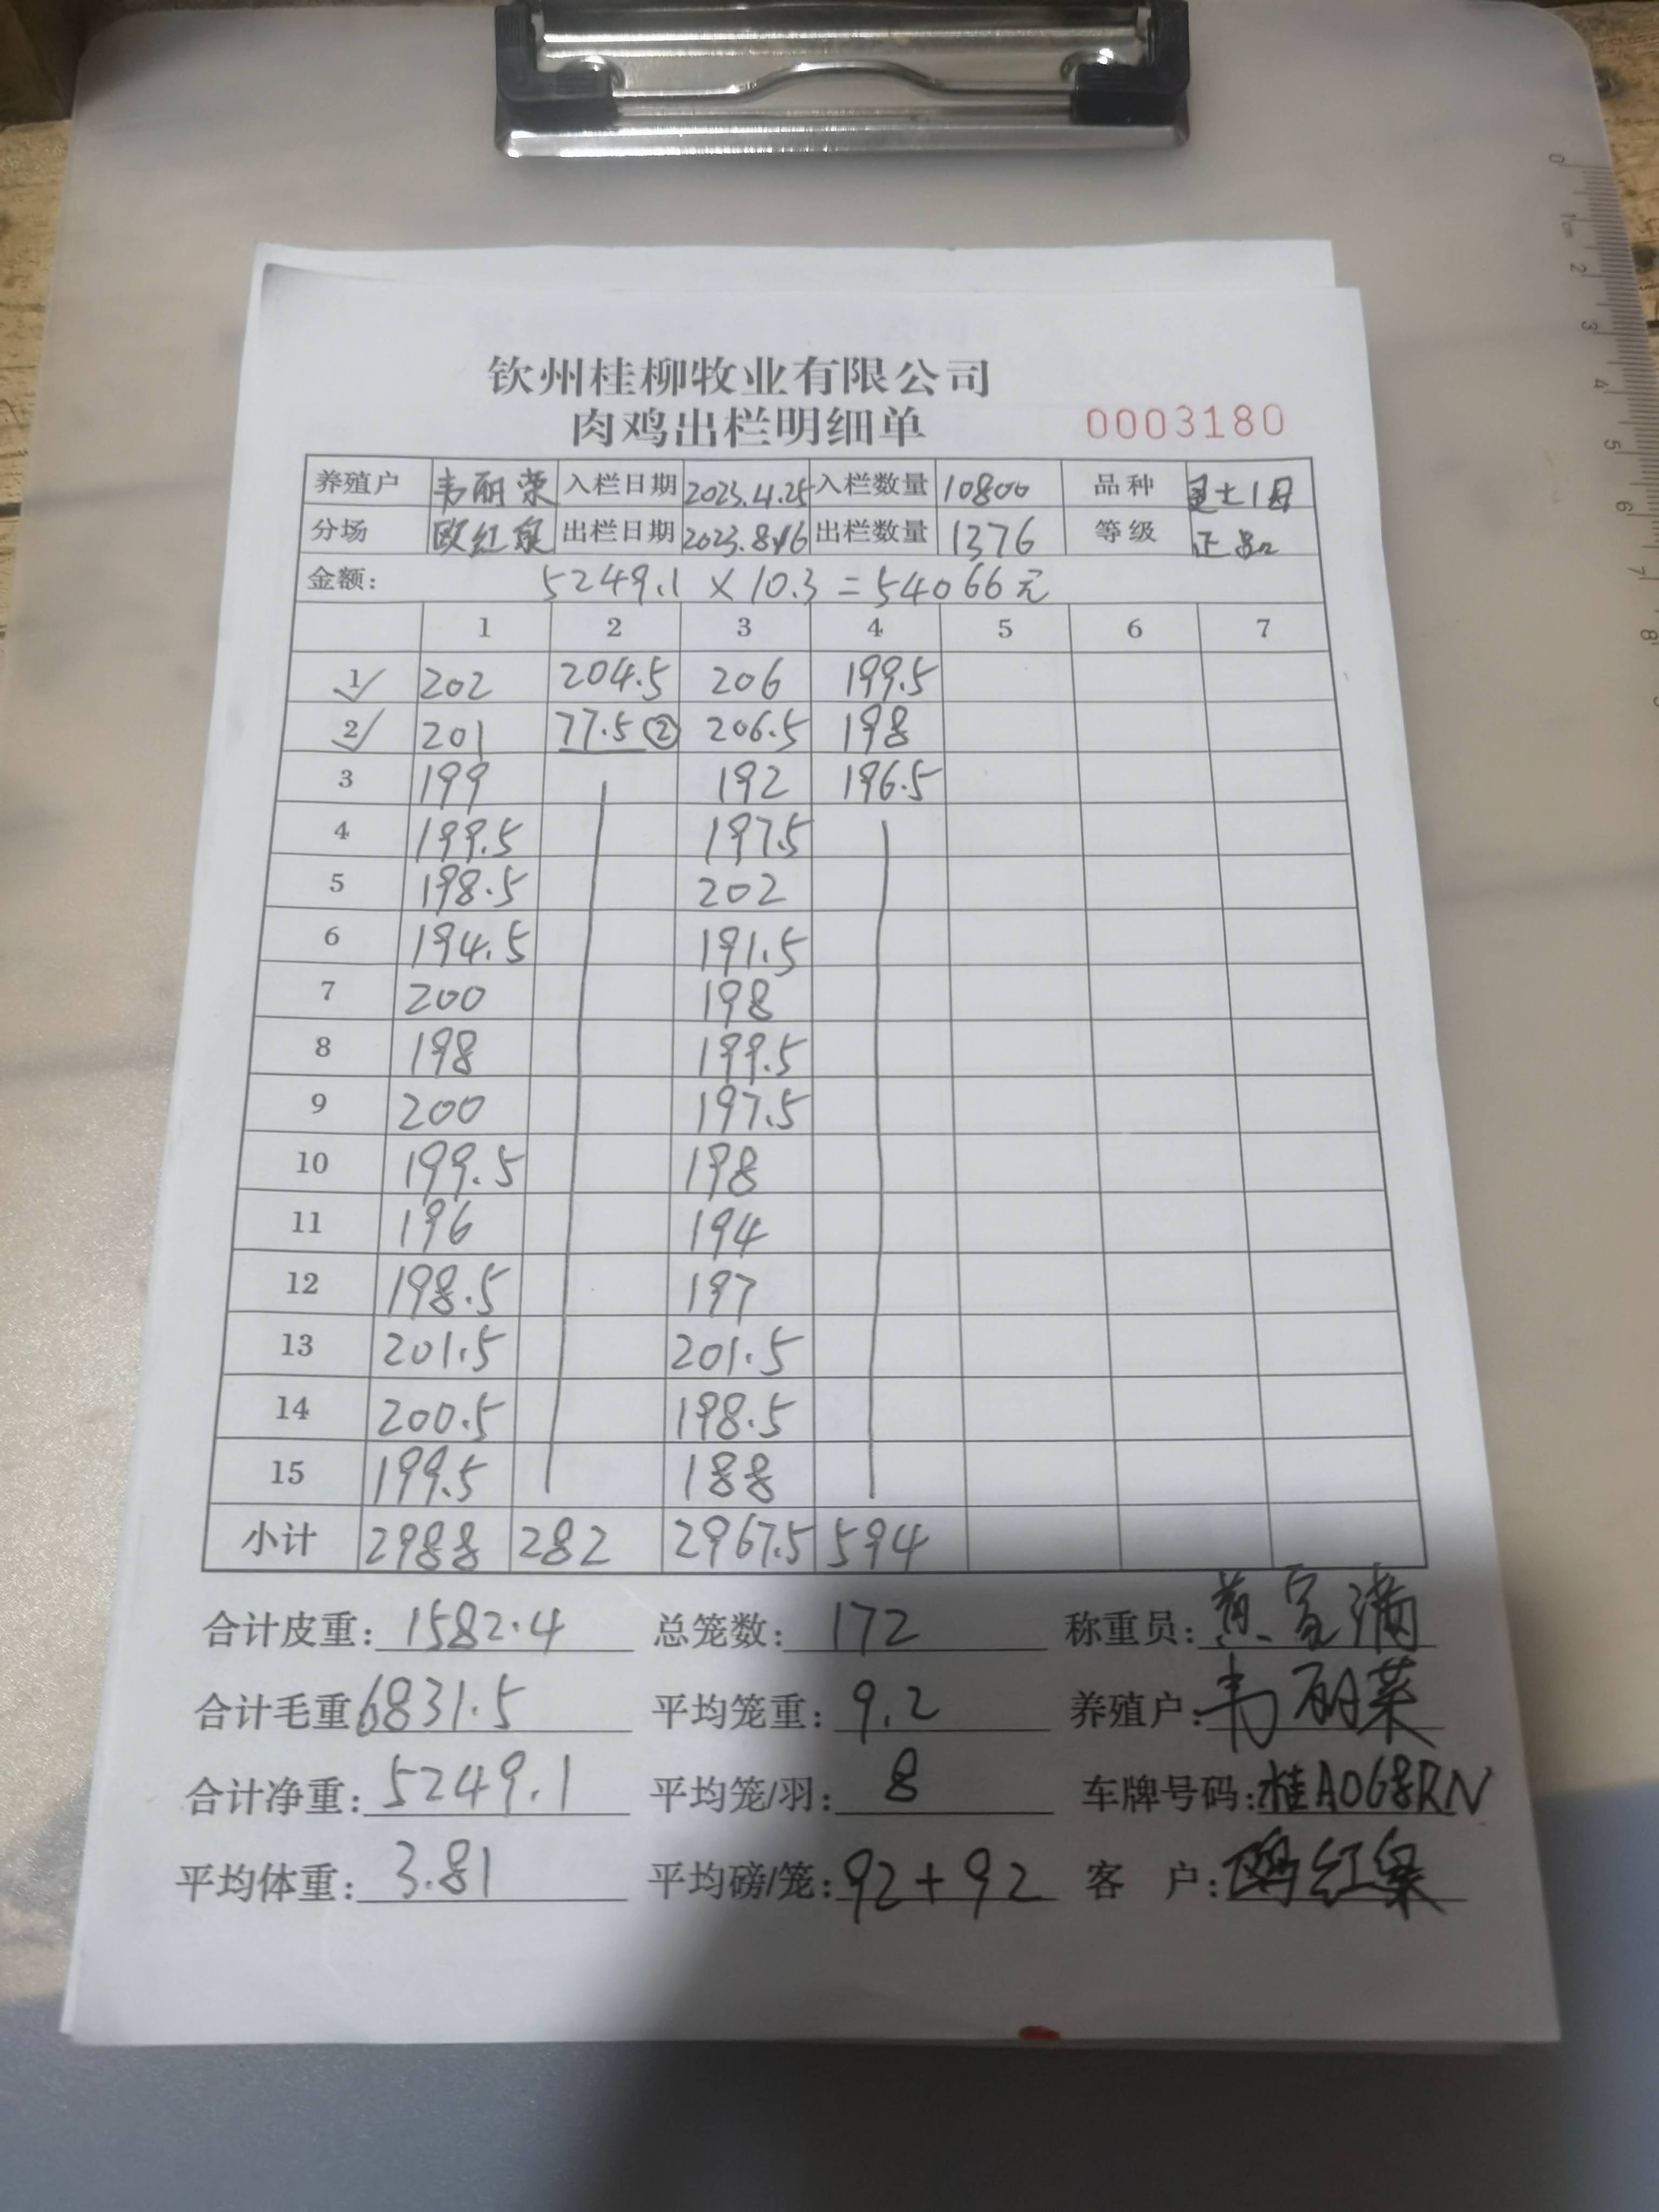 钦州桂柳牧业有限公司
肉鸡出栏明细单 0003180
养殖户 韦丽荣 入栏日期 2023.4.25 入栏数量 10800 品种 土1母
分场 欧红泉 出栏日期 2023.8.16 出栏数量 1376 等级 正品
金额: 5249.1 × 10.3 = 54066元
1 2 3 4 5 6 7
1 202 204.5 206 199.5
2 201 77.5② 206.5 198
3 199 192 196.5
4 199.5 197.5
5 198.5 202
6 194.5 191.5
7 200 198
8 198 199.5
9 200 197.5
10 199.5 198
11 196 194
12 198.5 197
13 201.5 201.5
14 200.5 198.5
15 199.5 188
小计 2988 282 2967.5 594
合计皮重: 1582.4 总笼数: 172 称重员: 黄家满
合计毛重 6831.5 平均笼重: 9.2 养殖户: 韦丽荣
合计净重: 5249.1 平均笼/羽: 8 车牌号码: 桂A068RN
平均体重: 3.81 平均磅/笼: 92+92 客 户: 欧红泉
0 1cm 2 3 4 5 6 7 8